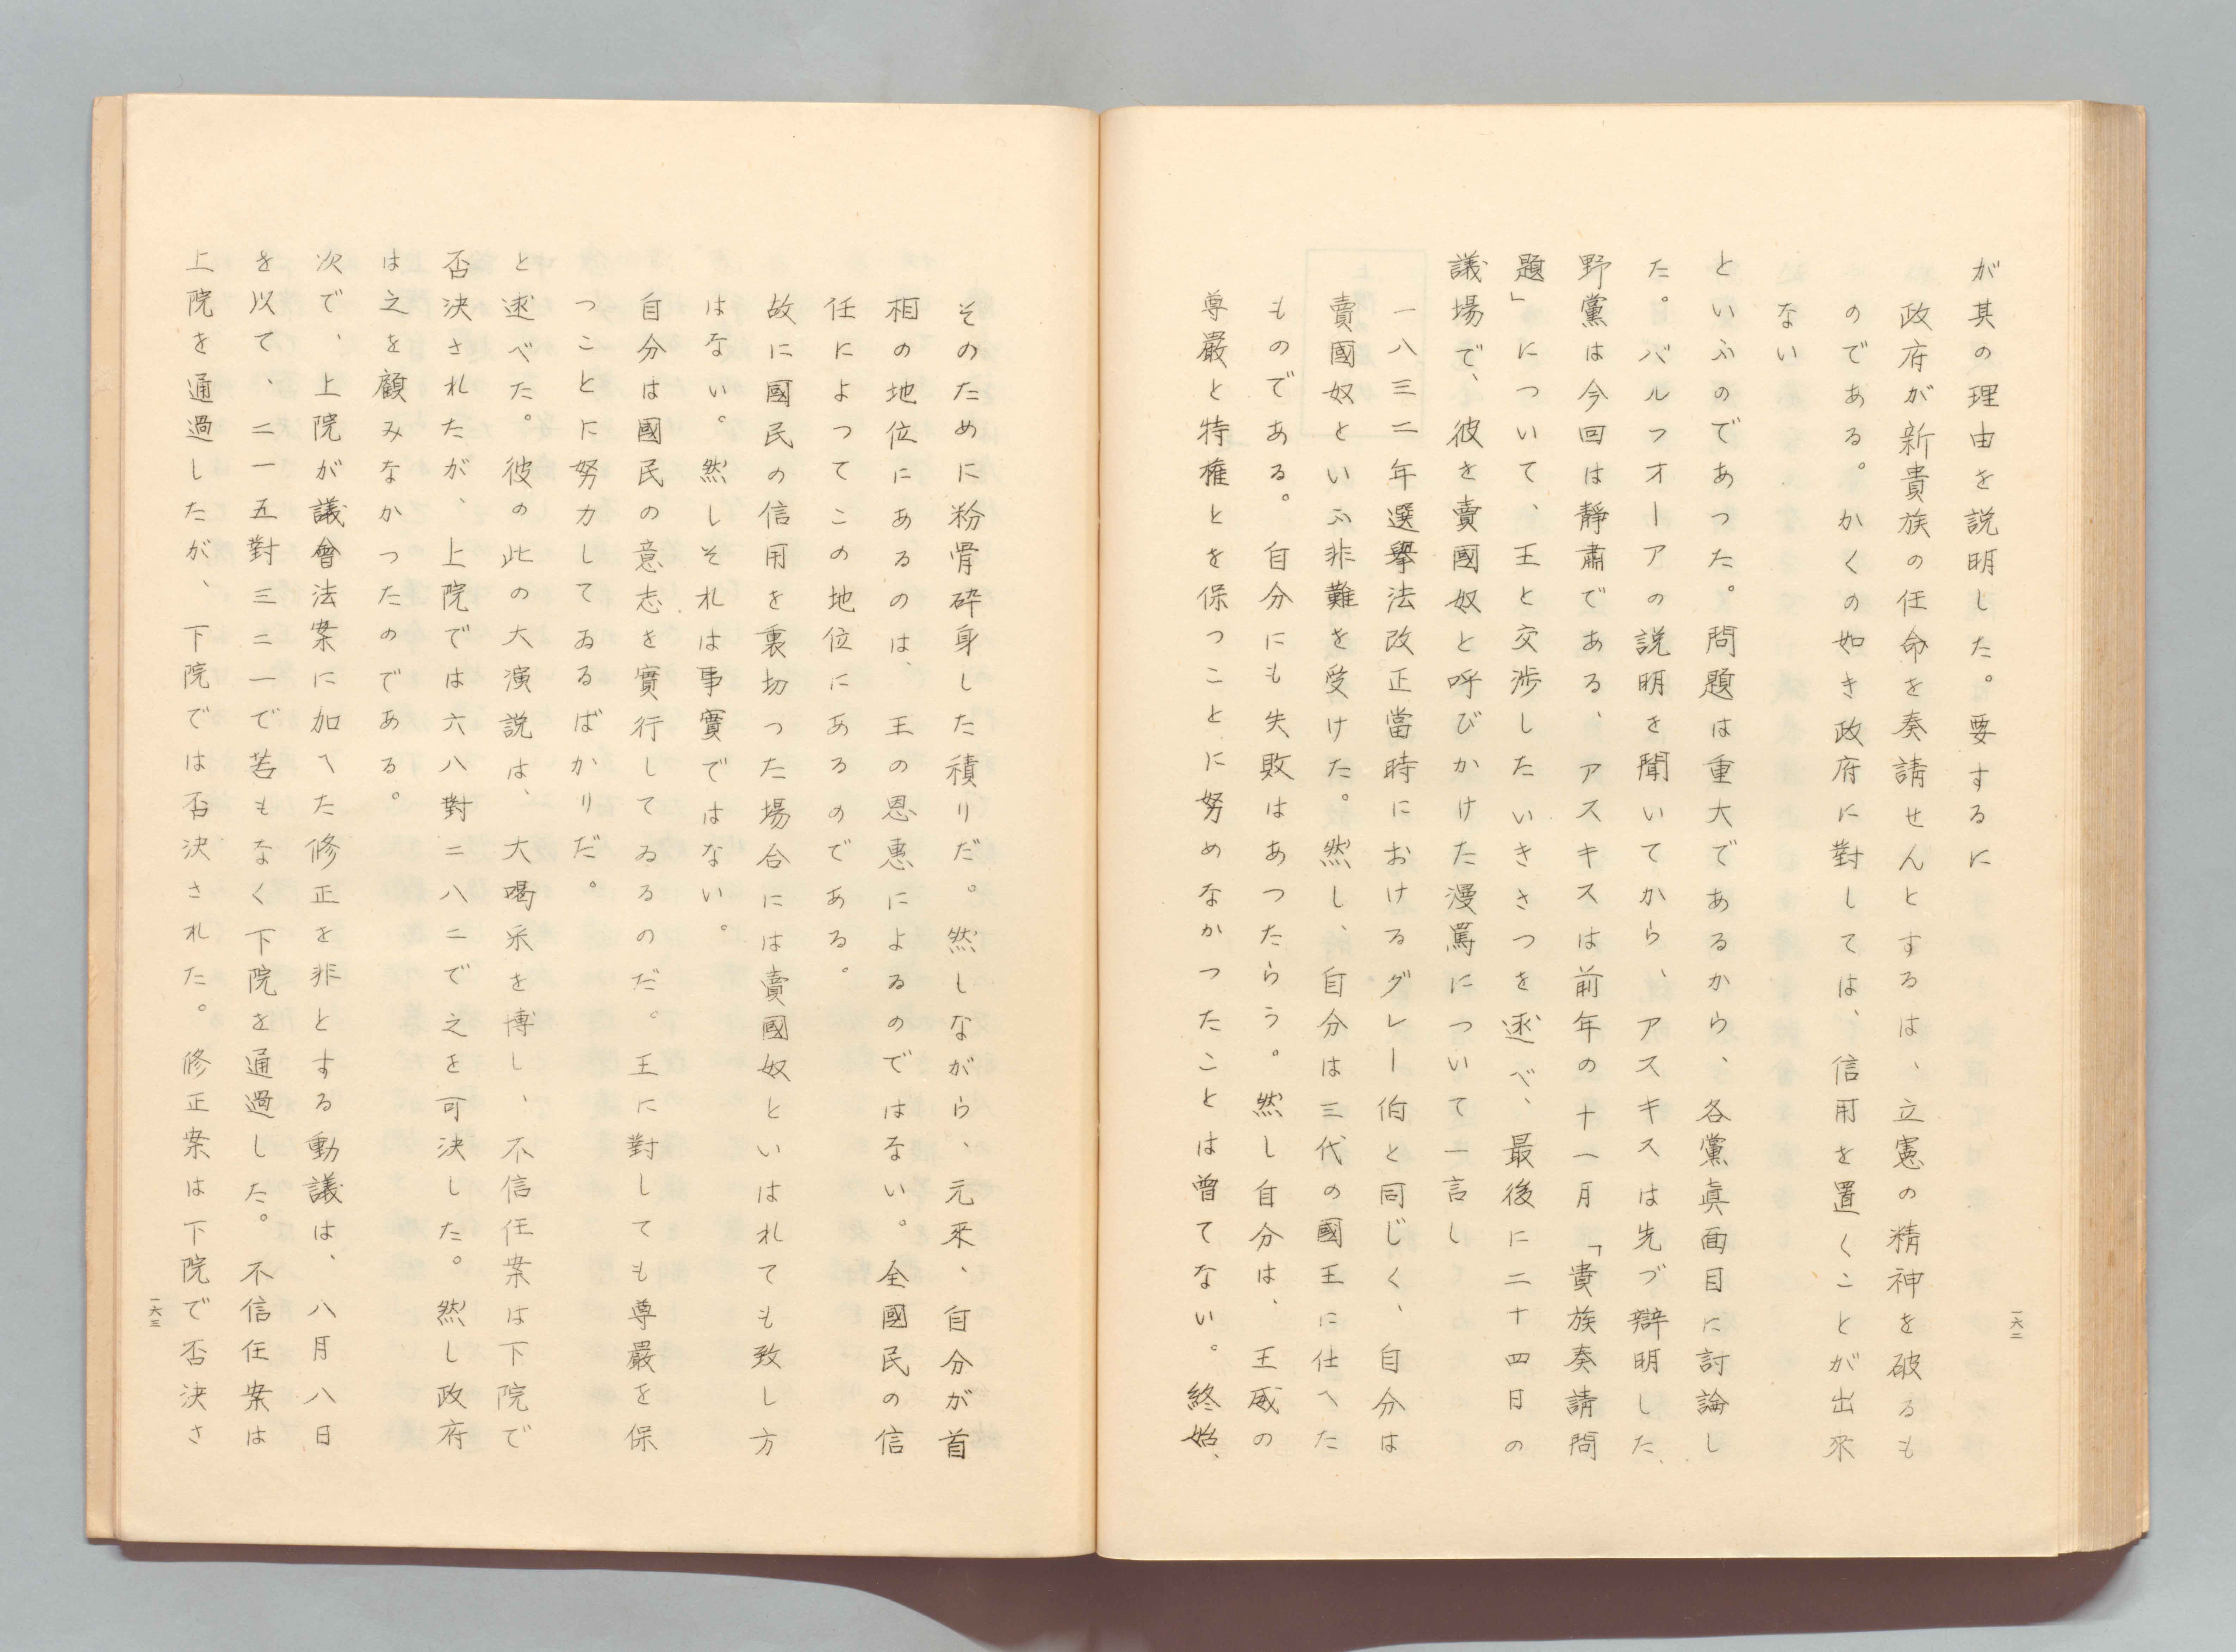 が其の理由を説明した。要するに
政府が新貴族の任命を奏請せんとするは、立憲の精神を破るも
のである。かくの如き政府に對しては、信用を置くことが出來
ない
といふのであつた。問題は重大であるから、各黨眞面目に討論し
た。バルフオーアの説明を聞いてから、アスキスは先づ辯明した、
野黨は今回は靜肅である、アスキスは前年の十一月「貴族奏請問
題」について、王と交渉したいきさつを述べ、最後に二十四日の
議場で、彼を賣國奴と呼びかけた漫罵について一言し
一八三二年選擧法改正當時におけるグレー伯と同じく、自分は
賣國奴といふ非難を受けた。然し、自分は三代の國王に仕へた
ものである。自分にも失敗はあつたらう。然し自分は、王威の
尊嚴と特權とを保つことに努めなかつたことは曾てない。終始、
一六二
そのために粉骨碎身した積りだ。然しながら、元來、自分が首
相の地位にあるのは、王の恩惠によるのではない。全國民の信
任によつてこの地位にあるのである。
故に國民の信用を裏切つた場合には賣國奴といはれても致し方
はない。然しそれは事實ではない。
自分は國民の意志を實行してゐるのだ。王に對しても尊嚴を保
つことに努力してゐるばかりだ。
と述べた。彼の此の大演説は、大喝采を博し、不信任案は下院で
否決されたが、上院では六八對二八二で之を可決した。然し政府
は之を顧みなかつたのである。
次で、上院が議會法案に加へた修正を非とする動議は、八月八日
を以て、二一五對三二一で苦もなく下院を通過した。不信任案は
上院を通過したが、下院では否決された。修正案は下院で否決さ
一六三